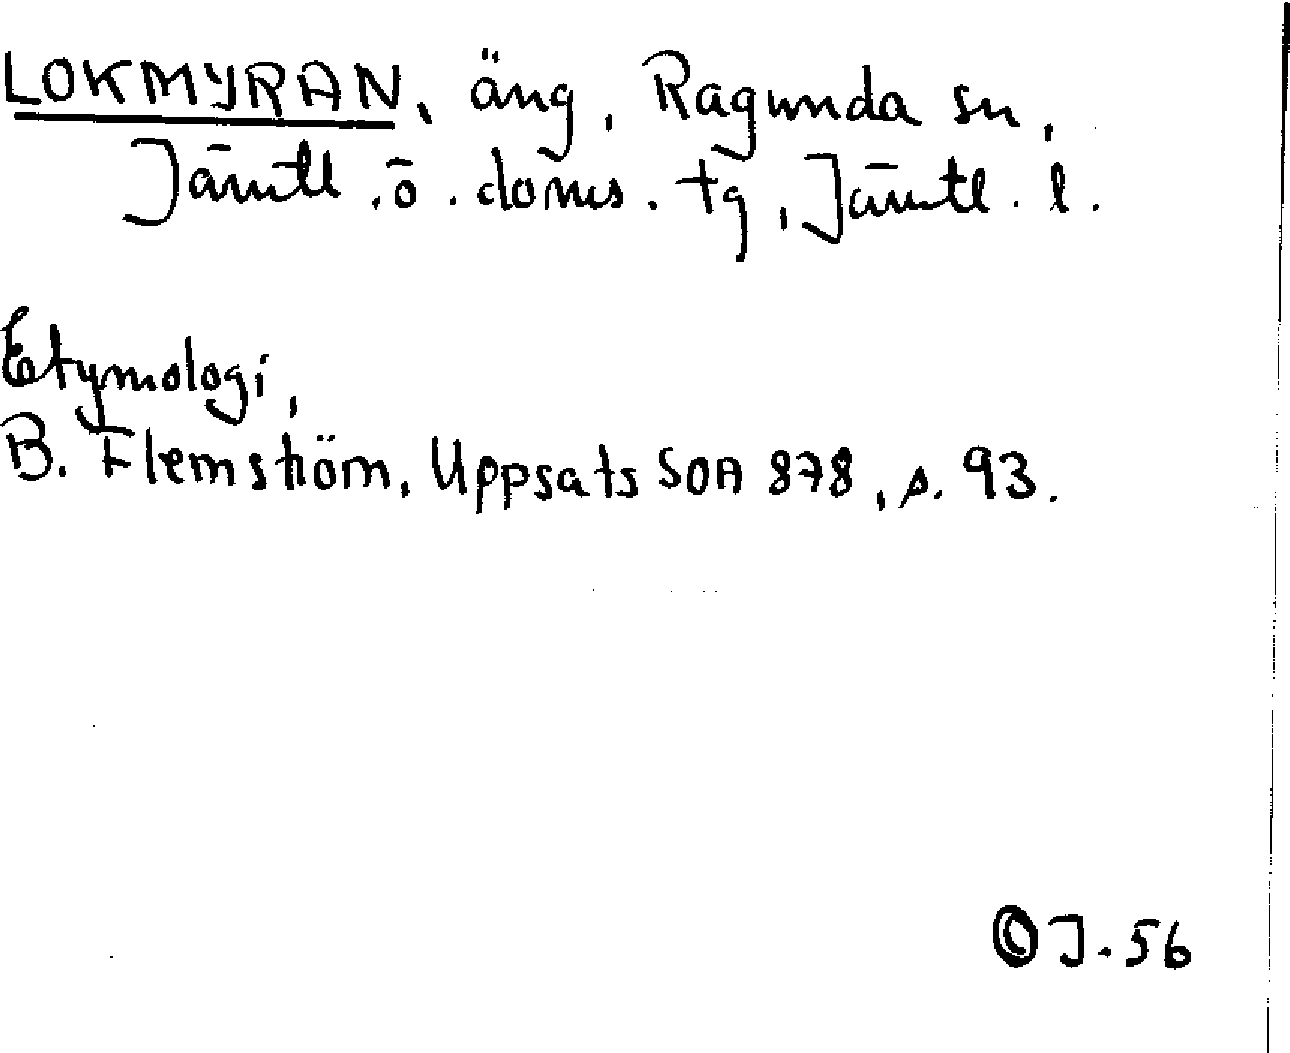 LOKMYRAN, äng, Ragunda sn,
Jämtl. ö. doms. tg, Jämtl. l.
Etymologi,
B. Flemström, Uppsats SOA 878, s. 93.
© J-56